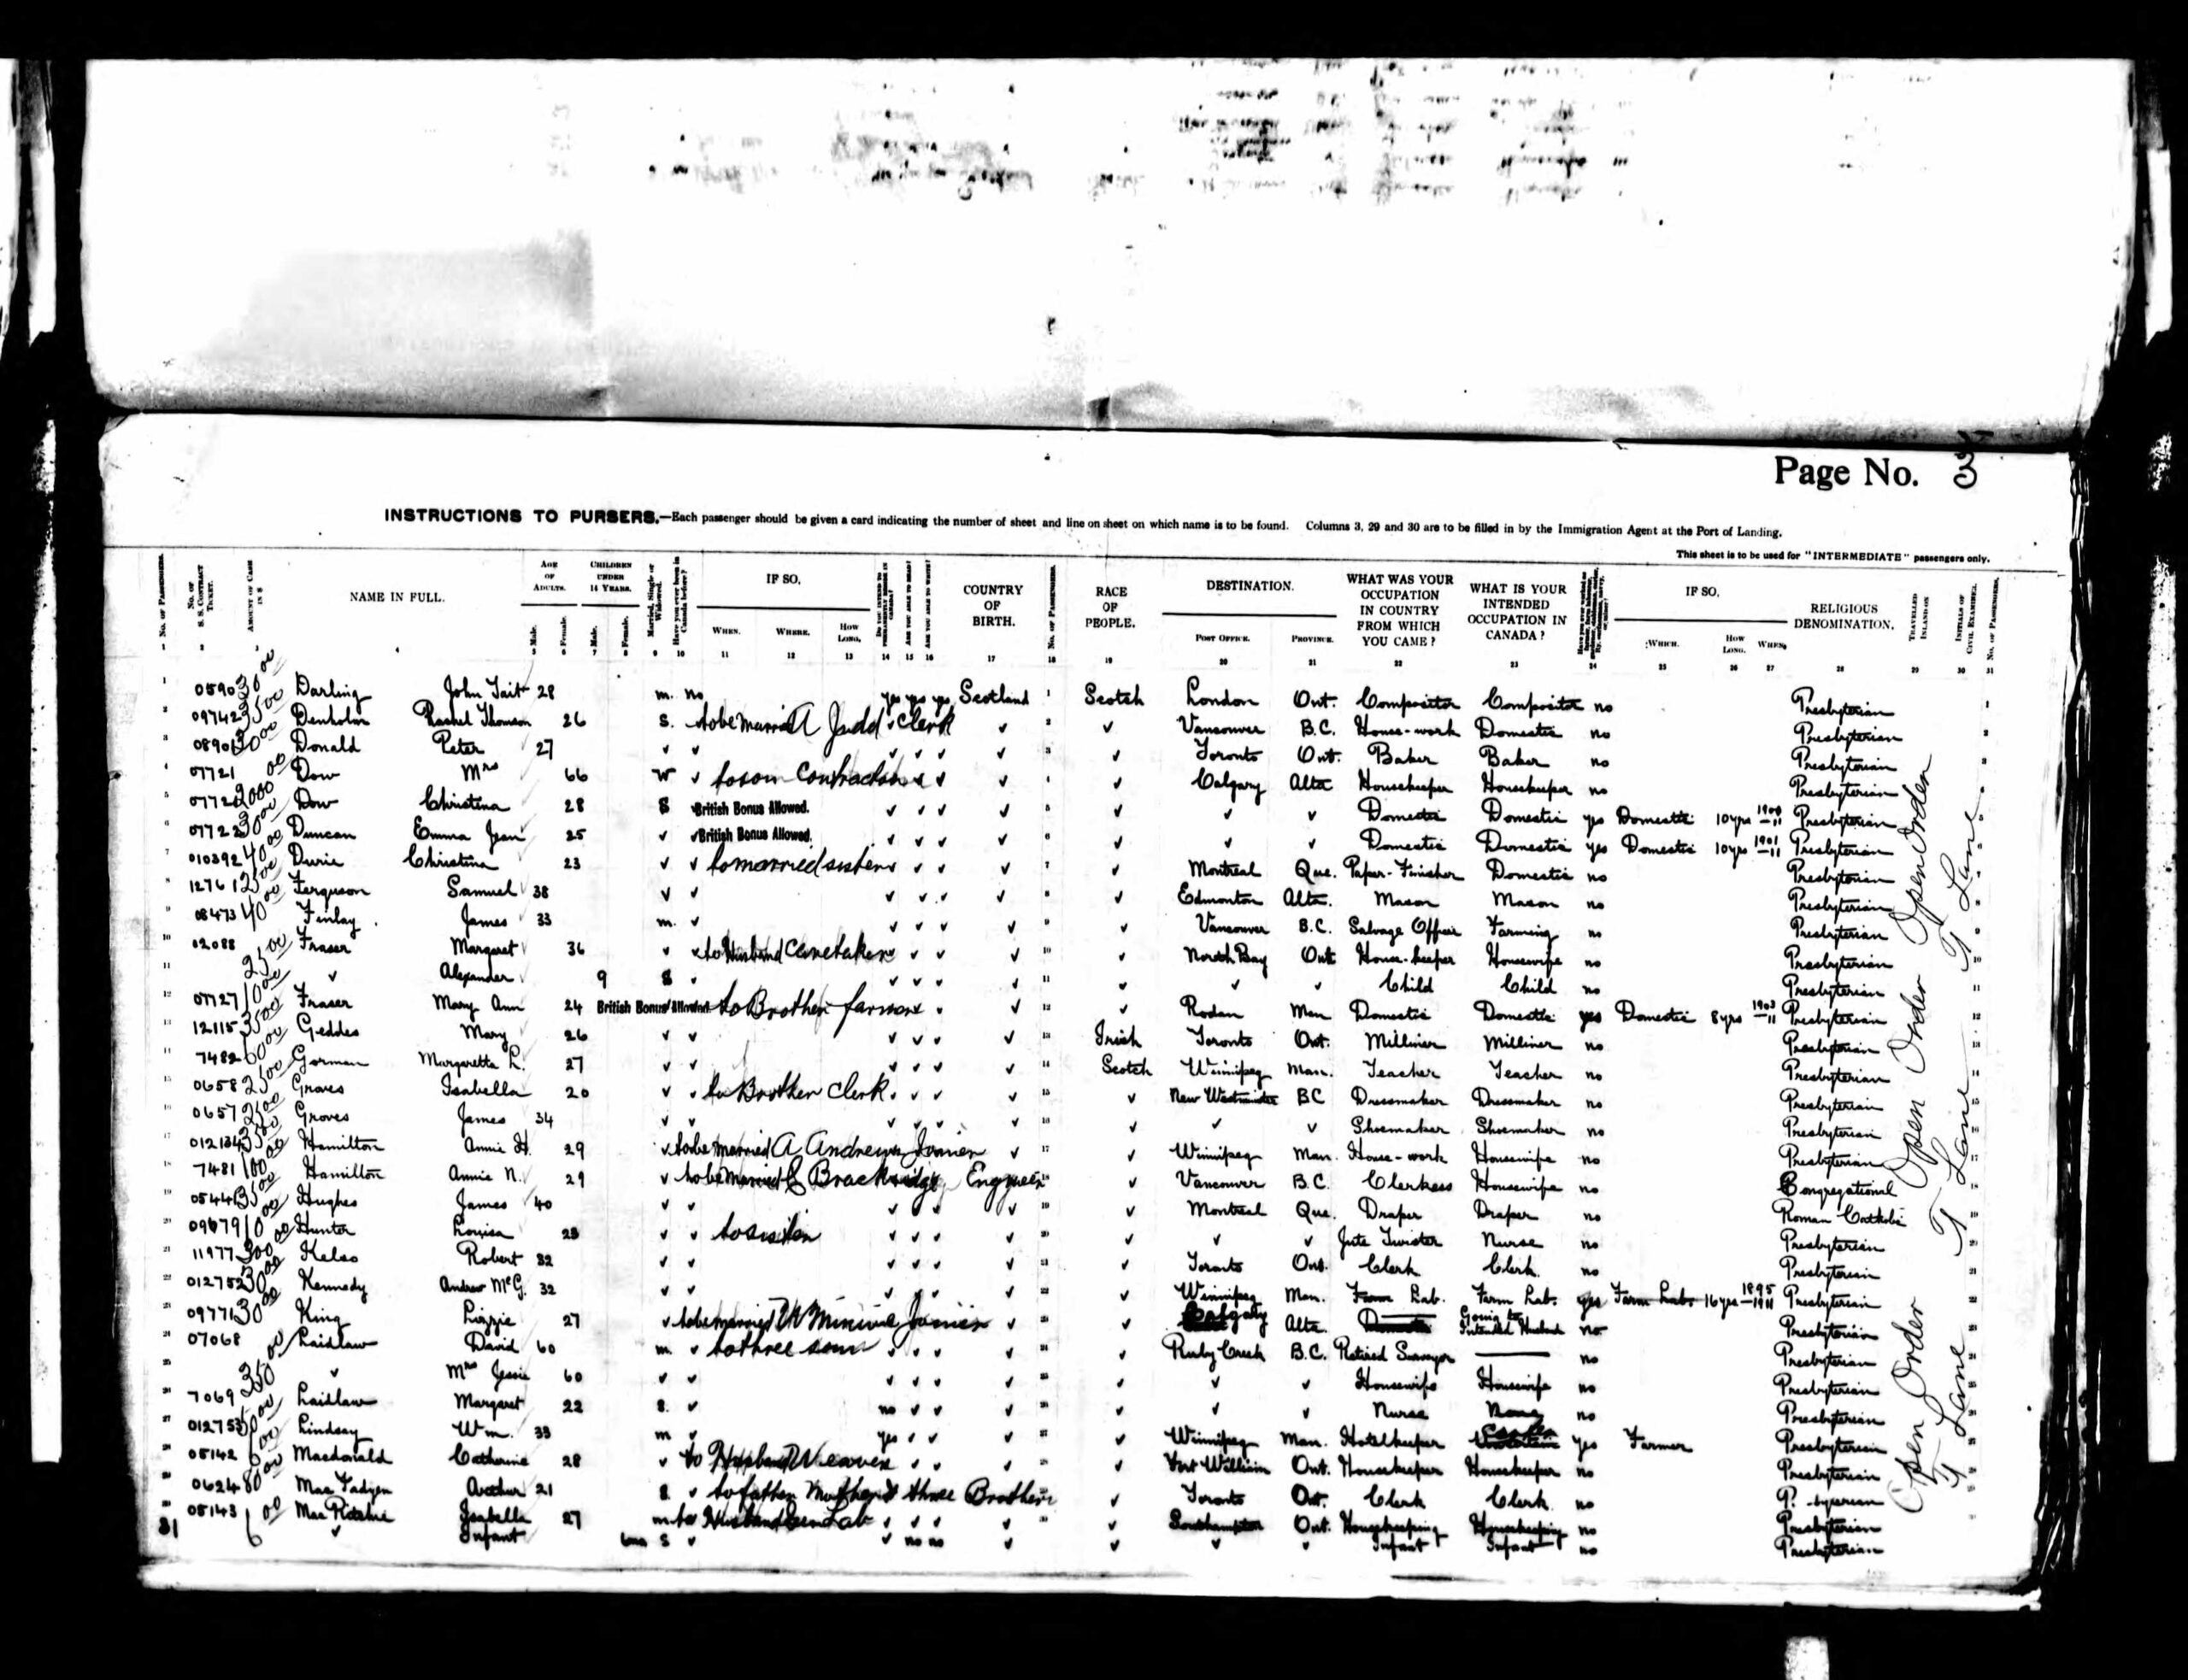 Page No. 3
INSTRUCTIONS TO PURSERS.—Each passenger should be given a card indicating the number of sheet and line on sheet on which name is to be found. Columns 3, 29 and 30 are to be filled in by the Immigration Agent at the Port of Landing.
This sheet is to be used for "INTERMEDIATE" passengers only.
No. OF PASSENGERS. No. OF S. S. CONTRACT TICKET. AMOUNT OF CASH IN $ NAME IN FULL. AGE OF ADULTS. Male. Female. CHILDREN UNDER 14 YEARS. Male. Female. Married, Single or Widowed. Have you ever been in Canada before? IF SO, WHEN. WHERE. HOW LONG, ARE YOU ABLE TO READ? ARE YOU ABLE TO WRITE? COUNTRY OF BIRTH. No. OF PASSENGERS. RACE OF PEOPLE. DESTINATION. POST OFFICE. PROVINCE. WHAT WAS YOUR OCCUPATION IN COUNTRY FROM WHICH YOU CAME? WHAT IS YOUR INTENDED OCCUPATION IN CANADA? IF SO, WHICH. HOW LONG. WHEN. RELIGIOUS DENOMINATION. TRAVELLED INLAND ON INITIALS OF CIVIL EXAMINER. No. OF PASSENGERS.
1 Darling John Tait 28 m. no yes yes yes Scotland 1 Scotch London Ont. Compositor Compositor no Presbyterian 1
2 Denholm Rachel Thomson 26 S. to be married A Judd Clerk ✓ 2 ✓ Vancouver B.C. House-work Domestic no Presbyterian 2
3 Donald Peter 27 ✓ ✓ ✓ ✓ ✓ ✓ 3 ✓ Toronto Ont. Baker Baker no Presbyterian 3
4 07721 Dow Mrs 66 W ✓ to son Contractor ✓ ✓ 4 ✓ Calgary Alta Housekeeper Housekeeper no Presbyterian
5 Dow Christina 28 S ✓ British Bonus Allowed. ✓ ✓ ✓ ✓ 5 ✓ ✓ ✓ Domestic Domestic yes Domestic 10yrs Presbyterian
6 Duncan Emma Jean 25 ✓ ✓ British Bonus Allowed. ✓ ✓ ✓ ✓ 6 ✓ ✓ ✓ Domestic Domestic yes Domestic 10yrs 1901–11 Presbyterian
7 010392 40 00 Durie Christina 23 ✓ ✓ to married sister ✓ ✓ ✓ 7 ✓ Montreal Que. Paper-Finisher Domestic no Presbyterian
8 Ferguson Samuel 38 ✓ ✓ ✓ ✓ ✓ ✓ 8 ✓ Edmonton Alta. Mason Mason no Presbyterian
9 08473 40 00 Finlay James 33 m. ✓ ✓ ✓ ✓ ✓ 9 ✓ Vancouver B.C. Salvage Officer Farming no Presbyterian 9
10 02088 25 00 Fraser Margaret 36 ✓ ✓ to Husband Caretaker ✓ ✓ ✓ 10 ✓ North Bay Ont House-keeper Housewife no Presbyterian 10
11 ✓ Alexander 9 S ✓ ✓ ✓ ✓ ✓ 11 ✓ ✓ ✓ Child Child no Presbyterian 11
12 07727 10 00 Fraser Mary Ann 24 British Bonus Allowed to Brother farmer ✓ ✓ 12 ✓ Man Domestic Domestic yes Domestic 8yrs 1903–11 Presbyterian 12
13 12115 35 00 Geddes Mary 26 ✓ ✓ ✓ ✓ ✓ ✓ 13 Irish Toronto Ont. Milliner Milliner no Presbyterian 13
14 7482 60 00 Gorman Margaretta L. 27 ✓ ✓ ✓ ✓ ✓ ✓ 14 Scotch Winnipeg Man. Teacher Teacher no Presbyterian 14
15 0658 25 00 Groves Isabella 20 ✓ ✓ to Brother Clerk ✓ ✓ ✓ 15 ✓ New Westminster BC Dressmaker Dressmaker no Presbyterian 15
16 0657 25 00 Groves James 34 ✓ ✓ ✓ ✓ ✓ ✓ 16 ✓ ✓ ✓ Shoemaker Shoemaker no Presbyterian 16
17 Hamilton Annie H. 29 ✓ to be married A Andrews Joiner ✓ 17 ✓ Winnipeg Man. House-work Housewife no Presbyterian 17
18 7481 100 00 Hamilton Annie N. 29 ✓ to be married Engineer 18 ✓ Vancouver B.C. Clerkess Housewife no Congregational 18
19 Hughes James 40 ✓ ✓ ✓ ✓ ✓ ✓ 19 ✓ Montreal Que. Draper Draper no Roman Catholic 19
20 09679 10 00 Hunter Louisa 23 ✓ ✓ to sister ✓ ✓ ✓ ✓ 20 ✓ ✓ ✓ Jute Twister Nurse no Presbyterian 20
21 11977 Kelso Robert 32 ✓ ✓ ✓ ✓ ✓ ✓ 21 ✓ Toronto Ont. Clerk Clerk no Presbyterian 21
22 01275 Kennedy Andrew McG. 32 ✓ ✓ ✓ ✓ ✓ ✓ 22 ✓ Winnipeg Man. Farm Lab. Farm Lab. yes Farm Lab. 16yrs 1895–1911 Presbyterian 22
23 09771 30 00 King Lizzie 27 ✓ to be married Joiner ✓ 23 ✓ Calgary Alta. Going to Intended Husband no Presbyterian 23
24 07068 Laidlaw David 60 m ✓ to three sons ✓ ✓ ✓ ✓ 24 ✓ Ruby Creek B.C. Retired Surveyor — no Presbyterian 24
25 350 ✓ Mrs Jessie 60 ✓ ✓ ✓ ✓ ✓ ✓ 25 ✓ ✓ ✓ Housewife Housewife no Presbyterian
26 7069 Laidlaw Margaret 22 S. ✓ no ✓ ✓ ✓ 26 ✓ ✓ ✓ Nurse None no Presbyterian
27 01275 Lindsay Wm. 33 m ✓ yes ✓ ✓ ✓ 27 ✓ Winnipeg Man. Hotelkeeper yes Farmer Presbyterian
28 05142 Macdonald Catherine 28 ✓ to Husband Weaver ✓ ✓ ✓ ✓ Fort William Ont. Housekeeper Housekeeper no Presbyterian
29 0624 80 00 Mac Fadyen Arthur 21 S. to father Mother & three Brothers ✓ Toronto Ont. Clerk Clerk no
30 05143 6 00 Mac Ritchie Isabella 27 m to Husband Lab ✓ ✓ ✓ ✓ 30 ✓ Southampton Ont. Housekeeping Housekeeping no Presbyterian
31 ✓ Infant S ✓ ✓ no no ✓ ✓ ✓ ✓ Infant Infant no Presbyterian
Open Order Open Order Open Order
T Lane T Lane T Lane